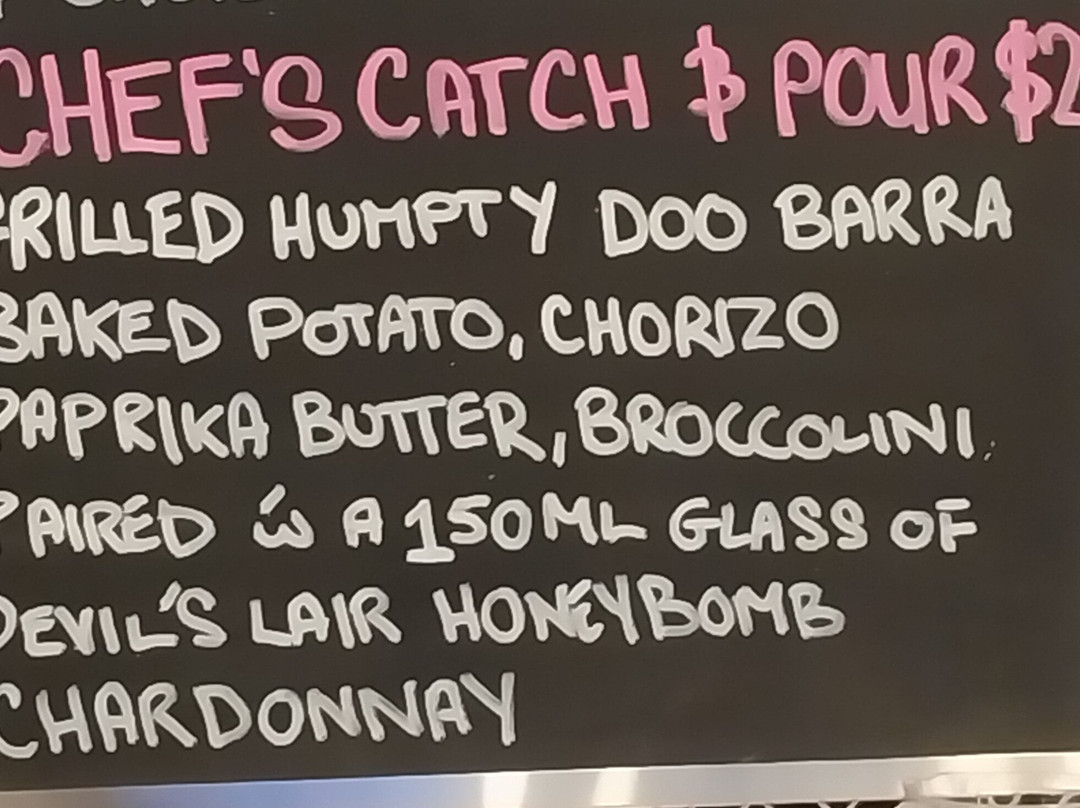 CHEF'S CATCH & POUR $2
GRILLED HUMPTY DOO BARRA
BAKED POTATO, CHORIZO
PAPRIKA BUTTER, BROCCOLINI.
PAIRED ẃ A 150ML GLASS OF
DEVIL'S LAIR HONEYBOMB
CHARDONNAY